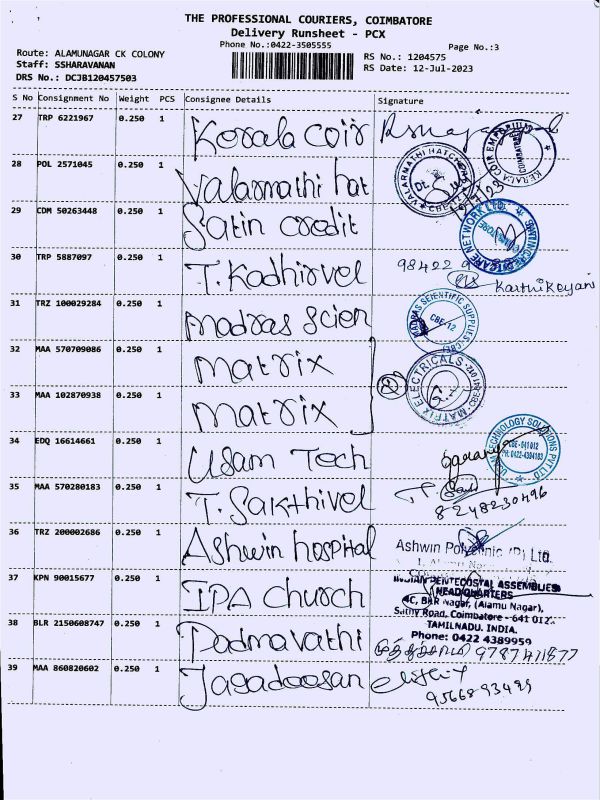 THE PROFESSIONAL COURIERS, COIMBATORE
Delivery Runsheet - PCX
Phone No.:0422-3505555
Page No.:3
Route: ALAMUNAGAR CK COLONY
Staff: SSHARAVANAN
DRS No.: DCJB120457503
RS No.: 1204575
RS Date: 12-Jul-2023
S No Consignment No Weight PCS Consignee Details Signature
27 TRP 6221967 0.250 1 Kerala coir
KERALA COIR EMPORIUM
28 POL 2571045 0.250 1 Valarmathi hat
VALARMATHI HATCHERIES
29 CDM 50263448 0.250 1 Satin credit
SATIN CREDITCARE NETWORK LTD.
30 TRP 5887097 0.250 1 T. Kadhirvel 98422
Karthikeyani
31 TRZ 100029284 0.250 1 Madras Scien
MADRAS SCIENTIFIC SUPPLIES
CBE-12
32 MAA 570709086 0.250 1 Matrix
MATRIX ELECTRICALS
33 MAA 102870938 0.250 1 Matrix
34 EDQ 16614661 0.250 1 Usam Tech
TECHNOLOGY SOLUTIONS PVT LTD
CBE - 641 012
PH: 0422-4304103
Saranya
35 MAA 570280183 0.250 1 T. Sakthivel
8248230496
36 TRZ 200002686 0.250 1 Ashwin hospital
Ashwin Polyclinic (P) Ltd.
37 KPN 90015677 0.250 1 IPA church
INDIAN PENTECOSTAL ASSEMBLIES
HEAD QUARTERS
4C, BKR Nagar, (Alamu Nagar),
Sathy Road, Coimbatore - 641 012.
TAMILNADU. INDIA.
Phone: 0422 4389959
38 BLR 2150608747 0.250 1 Padmavathi
9787471877
39 MAA 860820602 0.250 1 Jagadeesan
9566893499